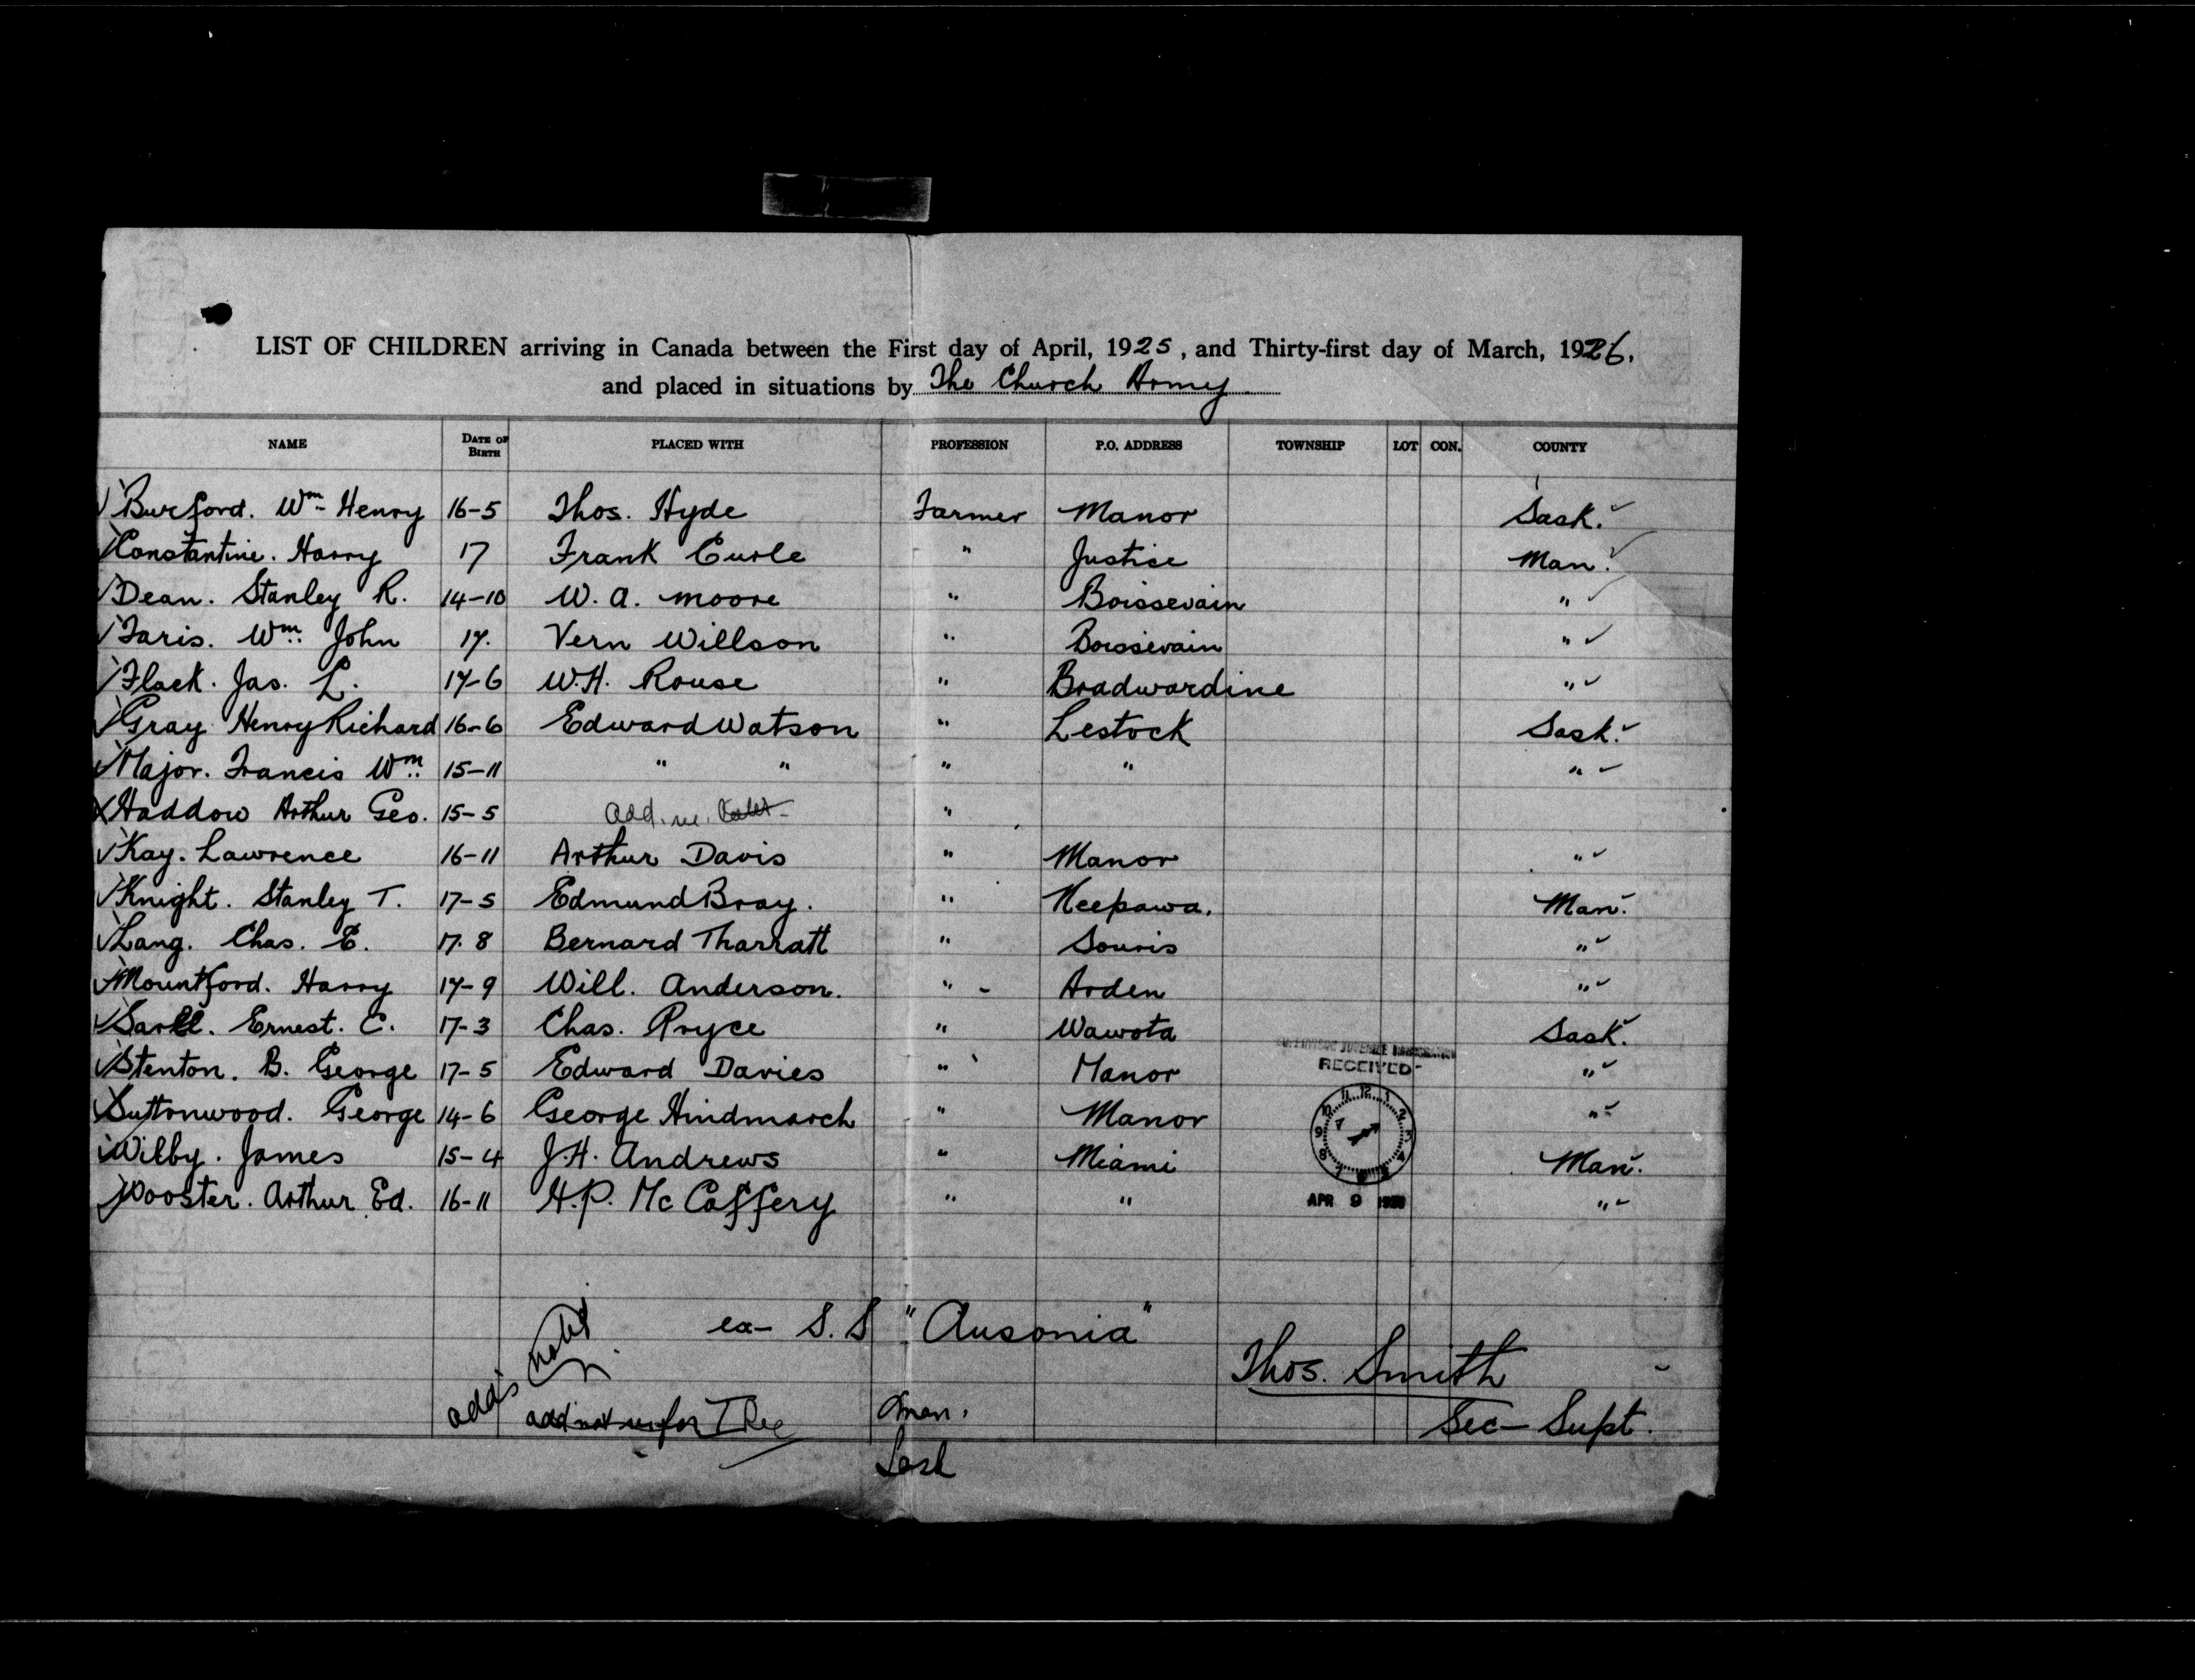 LIST OF CHILDREN arriving in Canada between the First day of April, 1925, and Thirty-first day of March, 1926.
and placed in situations by The Church Army
NAME DATE OF BIRTH PLACED WITH PROFESSION P.O. ADDRESS TOWNSHIP LOT CON. COUNTY
Burford. Wm. Henry 16-5 Thos. Hyde Farmer Manor Sask.
Constantine. Harry 17 Frank Curle " Justice Man.
Dean. Stanley R. 14-10 W. A. Moore " Boissevain "
Faris. Wm. John 17. Vern Willson " Boissevain "
Flack. Jas. L. 17-6 W.H. Rouse " Bradwardine "
Gray Henry Richard 16-6 Edward Watson " Lestock Sask.
Major. Francis Wm. 15-11 " " " " "
Haddow Arthur Geo. 15-5 "
Kay. Lawrence 16-11 Arthur Davis " Manor "
Knight. Stanley T. 17-5 Edmund Bray. " Neepawa. Man.
Lang. Chas. E. 17.8 Bernard Tharratt " Souris "
Mountford. Harry 17-9 Will. Anderson. " - Arden "
Sarll. Ernest. C. 17-3 Chas. Pryce " Wawota Sask.
Stenton. B. George 17-5 Edward Davies " Manor "
Suttonwood. George 14-6 George Hindmarch " Manor "
Wilby. James 15-4 J.H. Andrews " Miami Man.
Wooster. Arthur Ed. 16-11 H.P. McCaffery " " "
SUPERVISOR JUVENILE IMMIGRATION
RECEIVED
12 1 2 3 4 5 6 7 8 9 10 11
APR 9
ex- S.S "Ausonia"
Thos. Smith
Sec- Supt.
Man.
Sask